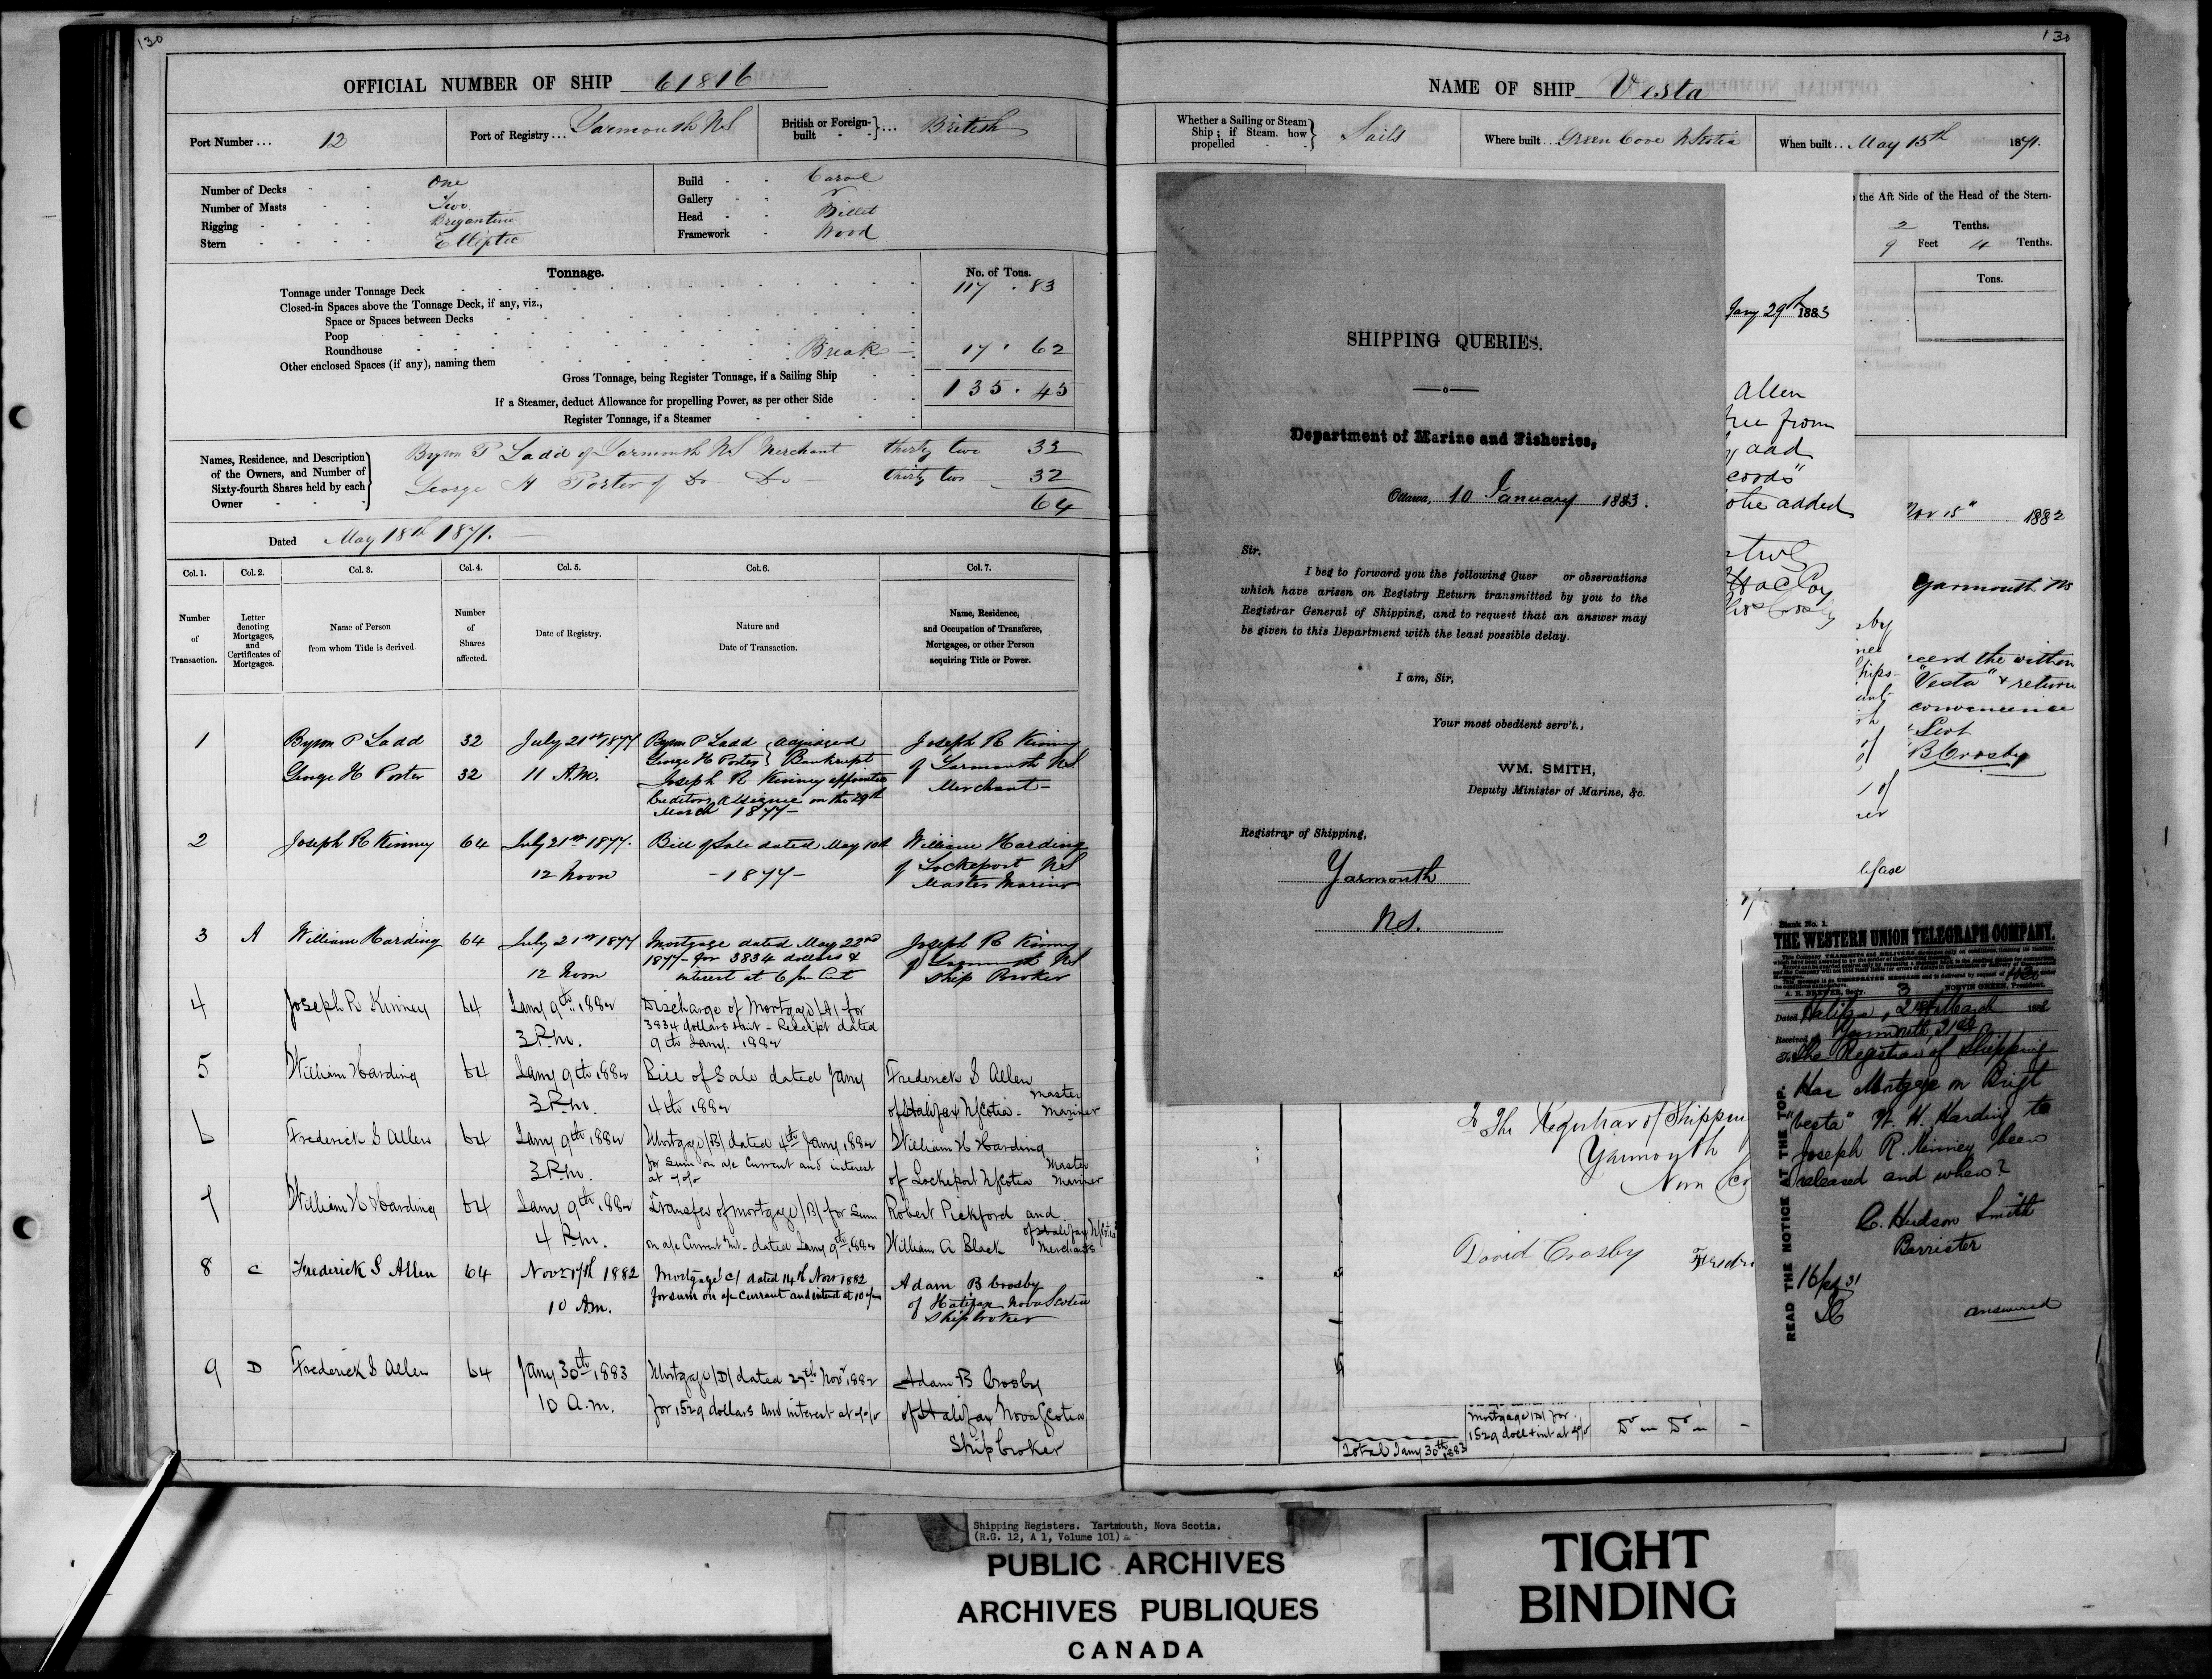 130
OFFICIAL NUMBER OF SHIP 61816
Port Number ... 12
Port of Registry ... Yarmouth NS
British or Foreign-built } ... British
Number of Decks One
Number of Masts Two
Rigging Brigantine
Stern Elliptic
Build Carvel
Gallery
Head Billet
Framework Wood
Tonnage. No. of Tons.
Tonnage under Tonnage Deck 117 . 83
Closed-in Spaces above the Tonnage Deck, if any, viz.,
Space or Spaces between Decks
Poop
Roundhouse Break 17 . 62
Other enclosed Spaces (if any), naming them
Gross Tonnage, being Register Tonnage, if a Sailing Ship 135 . 45
If a Steamer, deduct Allowance for propelling Power, as per other Side
Register Tonnage, if a Steamer
Names, Residence, and Description of the Owners, and Number of Sixty-fourth Shares held by each Owner
Byron P Ladd of Yarmouth NS Merchant thirty two 32
George H Porter of Do Do thirty two 32
64
Dated May 18th 1871.
Col. 1. Col. 2. Col. 3. Col. 4. Col. 5. Col. 6. Col. 7.
Number of Transaction.
Letter denoting Mortgages, and Certificates of Mortgages.
Name of Person from whom Title is derived.
Number of Shares affected.
Date of Registry.
Nature and Date of Transaction.
Name, Residence, and Occupation of Transferee, Mortgagee, or other Person acquiring Title or Power.
1 Byron P Ladd 32 July 21st 1877 Byron P Ladd } adjudged Joseph R Kinney
George H Porter 32 11 A.M. George H Porter } Bankrupt of Yarmouth NS
Joseph R Kinney appointed Merchant
Creditors Assignee on the 29th
March 1877
2 Joseph R Kinney 64 July 21st 1877. Bill of Sale dated May 10th William Harding
12 Noon - 1877 - of Lockeport NS
Master Mariner
3 A William Harding 64 July 21st 1877 Mortgage dated May 22nd Joseph R Kinney
1877 for 3834 dollars & of Yarmouth NS
12 Noon interest at 6 pr Cent Ship Broker
4 Joseph R Kinney 64 Jany 9th 1882 Discharge of Mortgage (A) for
3834 dollars & int - Receipt dated
3 P.m. 9th Jany. 1882
5 William Harding 64 Jany 9th 1882 Bill of Sale dated Jany Frederick S Allen
3 P.m. 4th 1882 of Halifax N Scotia - Master Mariner
6 Frederick S Allen 64 Jany 9th 1882 Mortgage (B) dated 4th Jany 1882 William H Harding
for Sum on a/c Current and interest
3 P.m. of Lockeport N Scotia Master Mariner
7 William H Harding 64 Jany 9th 1882 Transfer of mortgage (B) for Sum Robert Pickford and
4 P.m. on a/c Current & int - dated Jany 9th 1882 William A Black of Halifax N Scotia Merchants
8 C Frederick S Allen 64 Novr 17th 1882 Mortgage (C) dated 14th Novr 1882 Adam B Crosby
for sum on a/c Currant and interest at 10
10 A.m. of Halifax Nova Scotia
Shipbroker
9 D Frederick S Allen 64 Jany 30th 1883 Mortgage (D) dated 27th Novr 1882 Adam B Crosby
10 a.m. for 1529 dollars and interest at of Halifax Nova Scotia
Ship broker
130
NAME OF SHIP Vesta
Whether a Sailing or Steam Ship; if Steam, how propelled } Sails
Where built ... Green Cove N Scotia
When built ... May 15th 1871.
the Aft Side of the Head of the Stern-
2 Tenths.
9 Feet 4 Tenths.
Tons.
SHIPPING QUERIES.
Department of Marine and Fisheries,
Ottawa, 10 January 1883.
Sir,
I beg to forward you the following Quer or observations
which have arisen on Registry Return transmitted by you to the
Registrar General of Shipping, and to request that an answer may
be given to this Department with the least possible delay.
I am, Sir,
Your most obedient serv't.,
WM. SMITH,
Deputy Minister of Marine, &c.
Registrar of Shipping,
Yarmouth
N.S.
Jany 29th 1883
Allen
from
added
Nov 15" 1882
Yarmouth NS
the within
"Vesta" & return
convenience
B Crosby
To The Registrar of Shippin
Yarmouth
Nova Sco
David Crosby
Mortgage (D) for
1529 doll & int at
Do Do
Total Jany 30th 1883
Blank No. 1.
THE WESTERN UNION TELEGRAPH COMPANY.
A. R. BREWER, Secy. NORVIN GREEN, President.
Dated Halifax, 21st March 188
Received at Yarmouth, 21st
To The Registrar of Shipping
Has Mortgage on Brigt
"Vesta" W. H. Harding to
Joseph R. Kinney been
released and when?
C. Hudson Smith
Barrister
answered
READ THE NOTICE AT THE TOP.
Shipping Registers. Yartmouth, Nova Scotia.
(R.G. 12, A 1, Volume 101)
PUBLIC ARCHIVES
ARCHIVES PUBLIQUES
CANADA
TIGHT
BINDING